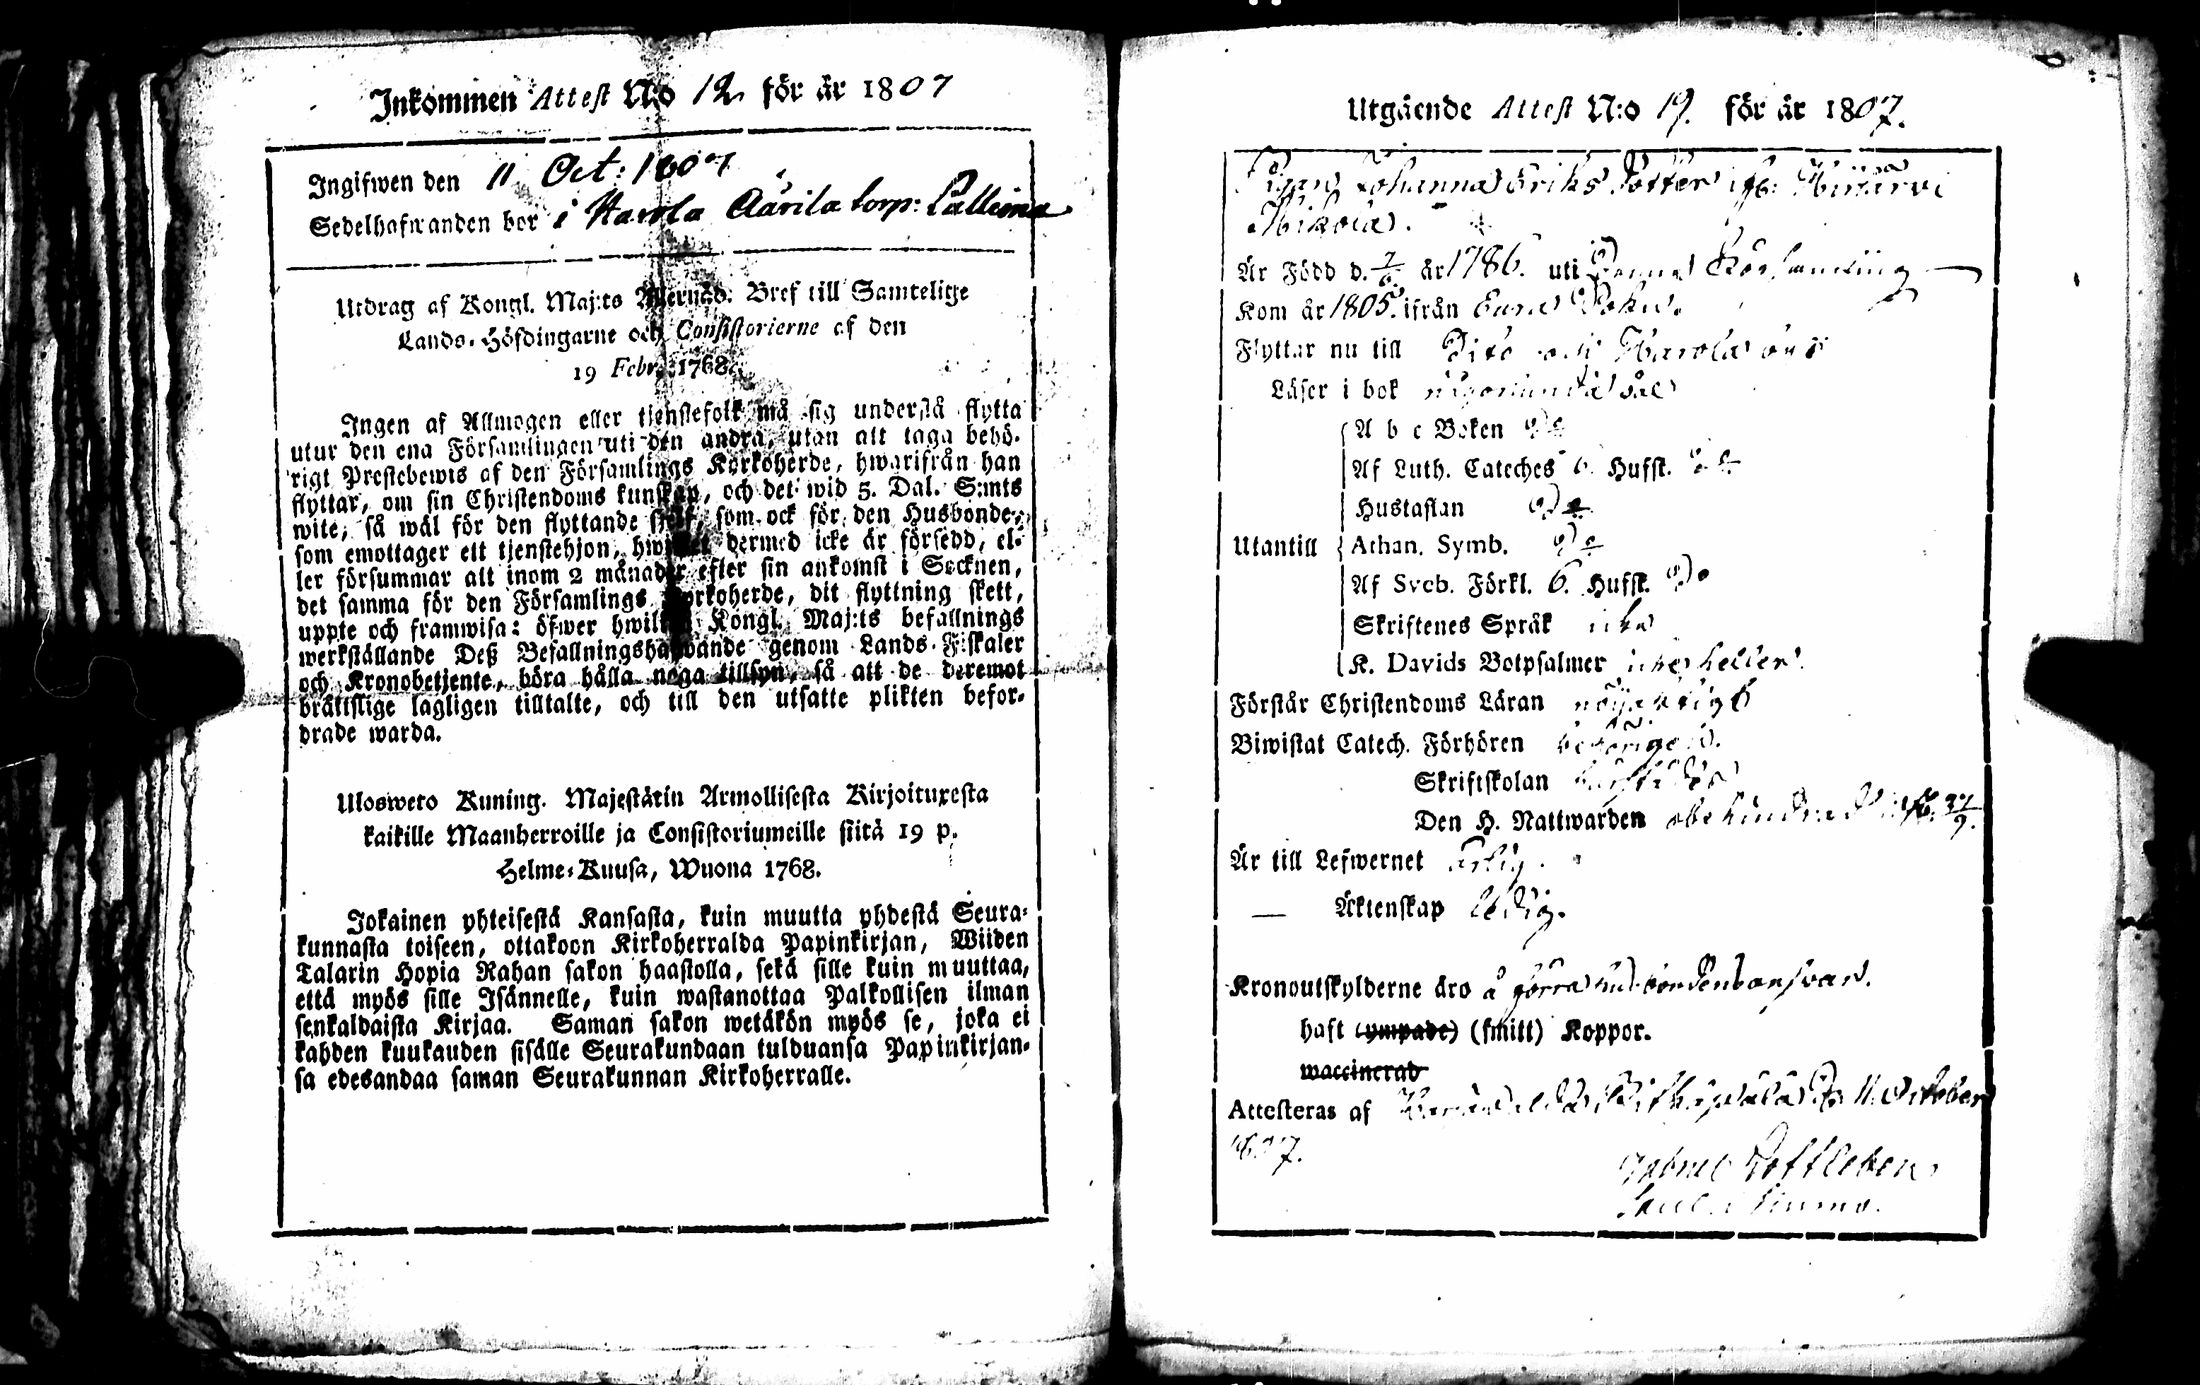 Inkommen Attest N:o 12 för år 1807
Ingifwen den 11 Oct: 1807
Sedelhafwanden bor i Harola Äärila torp:
Utdrag af Kongl. Maj:ts Allernåd. Bref till Samtelige
Lands-Höfdingarne och Consistorierne af den
19 Febr. 1768.
Ingen af Allmogen eller tjenstefolk må sig understå flytta
utur den ena Församlingen uti den andra, utan att taga behö-
rigt Prestebewis af den Församlings Kyrkoherde, hwarifrån han
flyttar, om sin Christendoms kunskap, och det wid 5. Dal. S:mts
wite, så wäl för den flyttande sjelf, som ock för den Husbonde,
som emottager ett tjenstehjon, hwilket dermed icke är försedd, el-
ler försummar att inom 2 månader efter sin ankomst i Socknen,
det samma för den Församlings Kyrkoherde, dit flyttning skett,
uppte och framwisa: öfwer hwilket Kongl. Maj:ts befallnings
werkställande Deß Befallningshafwande genom Lands-Fiskaler
och Kronobetjente, böra hålla noga tillsyn, så att de deremot
bråttslige lagligen tilltalte, och till den utsatte plikten befor-
drade warda.
Ulosweto Kuning. Majestätin Armollisesta Kirjoituxesta
kaikille Maanherroille ja Consistoriumeille siitä 19 p.
Helme-Kuusa, Wuona 1768.
Jokainen yhteisestä Kansasta, kuin muutta yhdestä Seura-
kunnasta toiseen, ottakoon Kirkoherralda Papinkirjan, Wiiden
Talarin Hopia Rahan sakon haastolla, sekä sille kuin muuttaa,
että myös sille Isännelle, kuin wastanottaa Palkollisen ilman
senkaldaista Kirjaa. Saman sakon wetäkön myös se, joka ei
kahden kuukauden sisälle Seurakundaan tulduansa Papinkirjan-
sa edesandaa saman Seurakunnan Kirkoherralle.
Utgående Attest N:o 19. för år 1807.
Pigan Johanna Eriks Dotter ifr:
Är Född d. 7/6 år 1786. uti Denna Församling
Kom år 1805. ifrån Eura
Flyttar nu till Dito och Harola
Läser i bok någorlunda
Utantill
A b c Boken
Af Luth. Cateches 6. Hufst.
Hustaflan
Athan. Symb.
Af Sveb. Förkl. 6. Hufst.
Skriftenes Språk icke
K. Davids Botpsalmer icke heller.
Förstår Christendoms Läran nöjaktigt
Biwistat Catech. Förhören behörigen.
Skriftskolan
Den H. Nattwarden obehindrad
Är till Lefwernet ärlig.
— Äktenskap ledig.
Kronoutskylderne äro å förra husbondens answar.
haft (ympade) (smitt) Koppor.
waccinerad
Attesteras af 11. October
1807.
Gabriel Rottleben